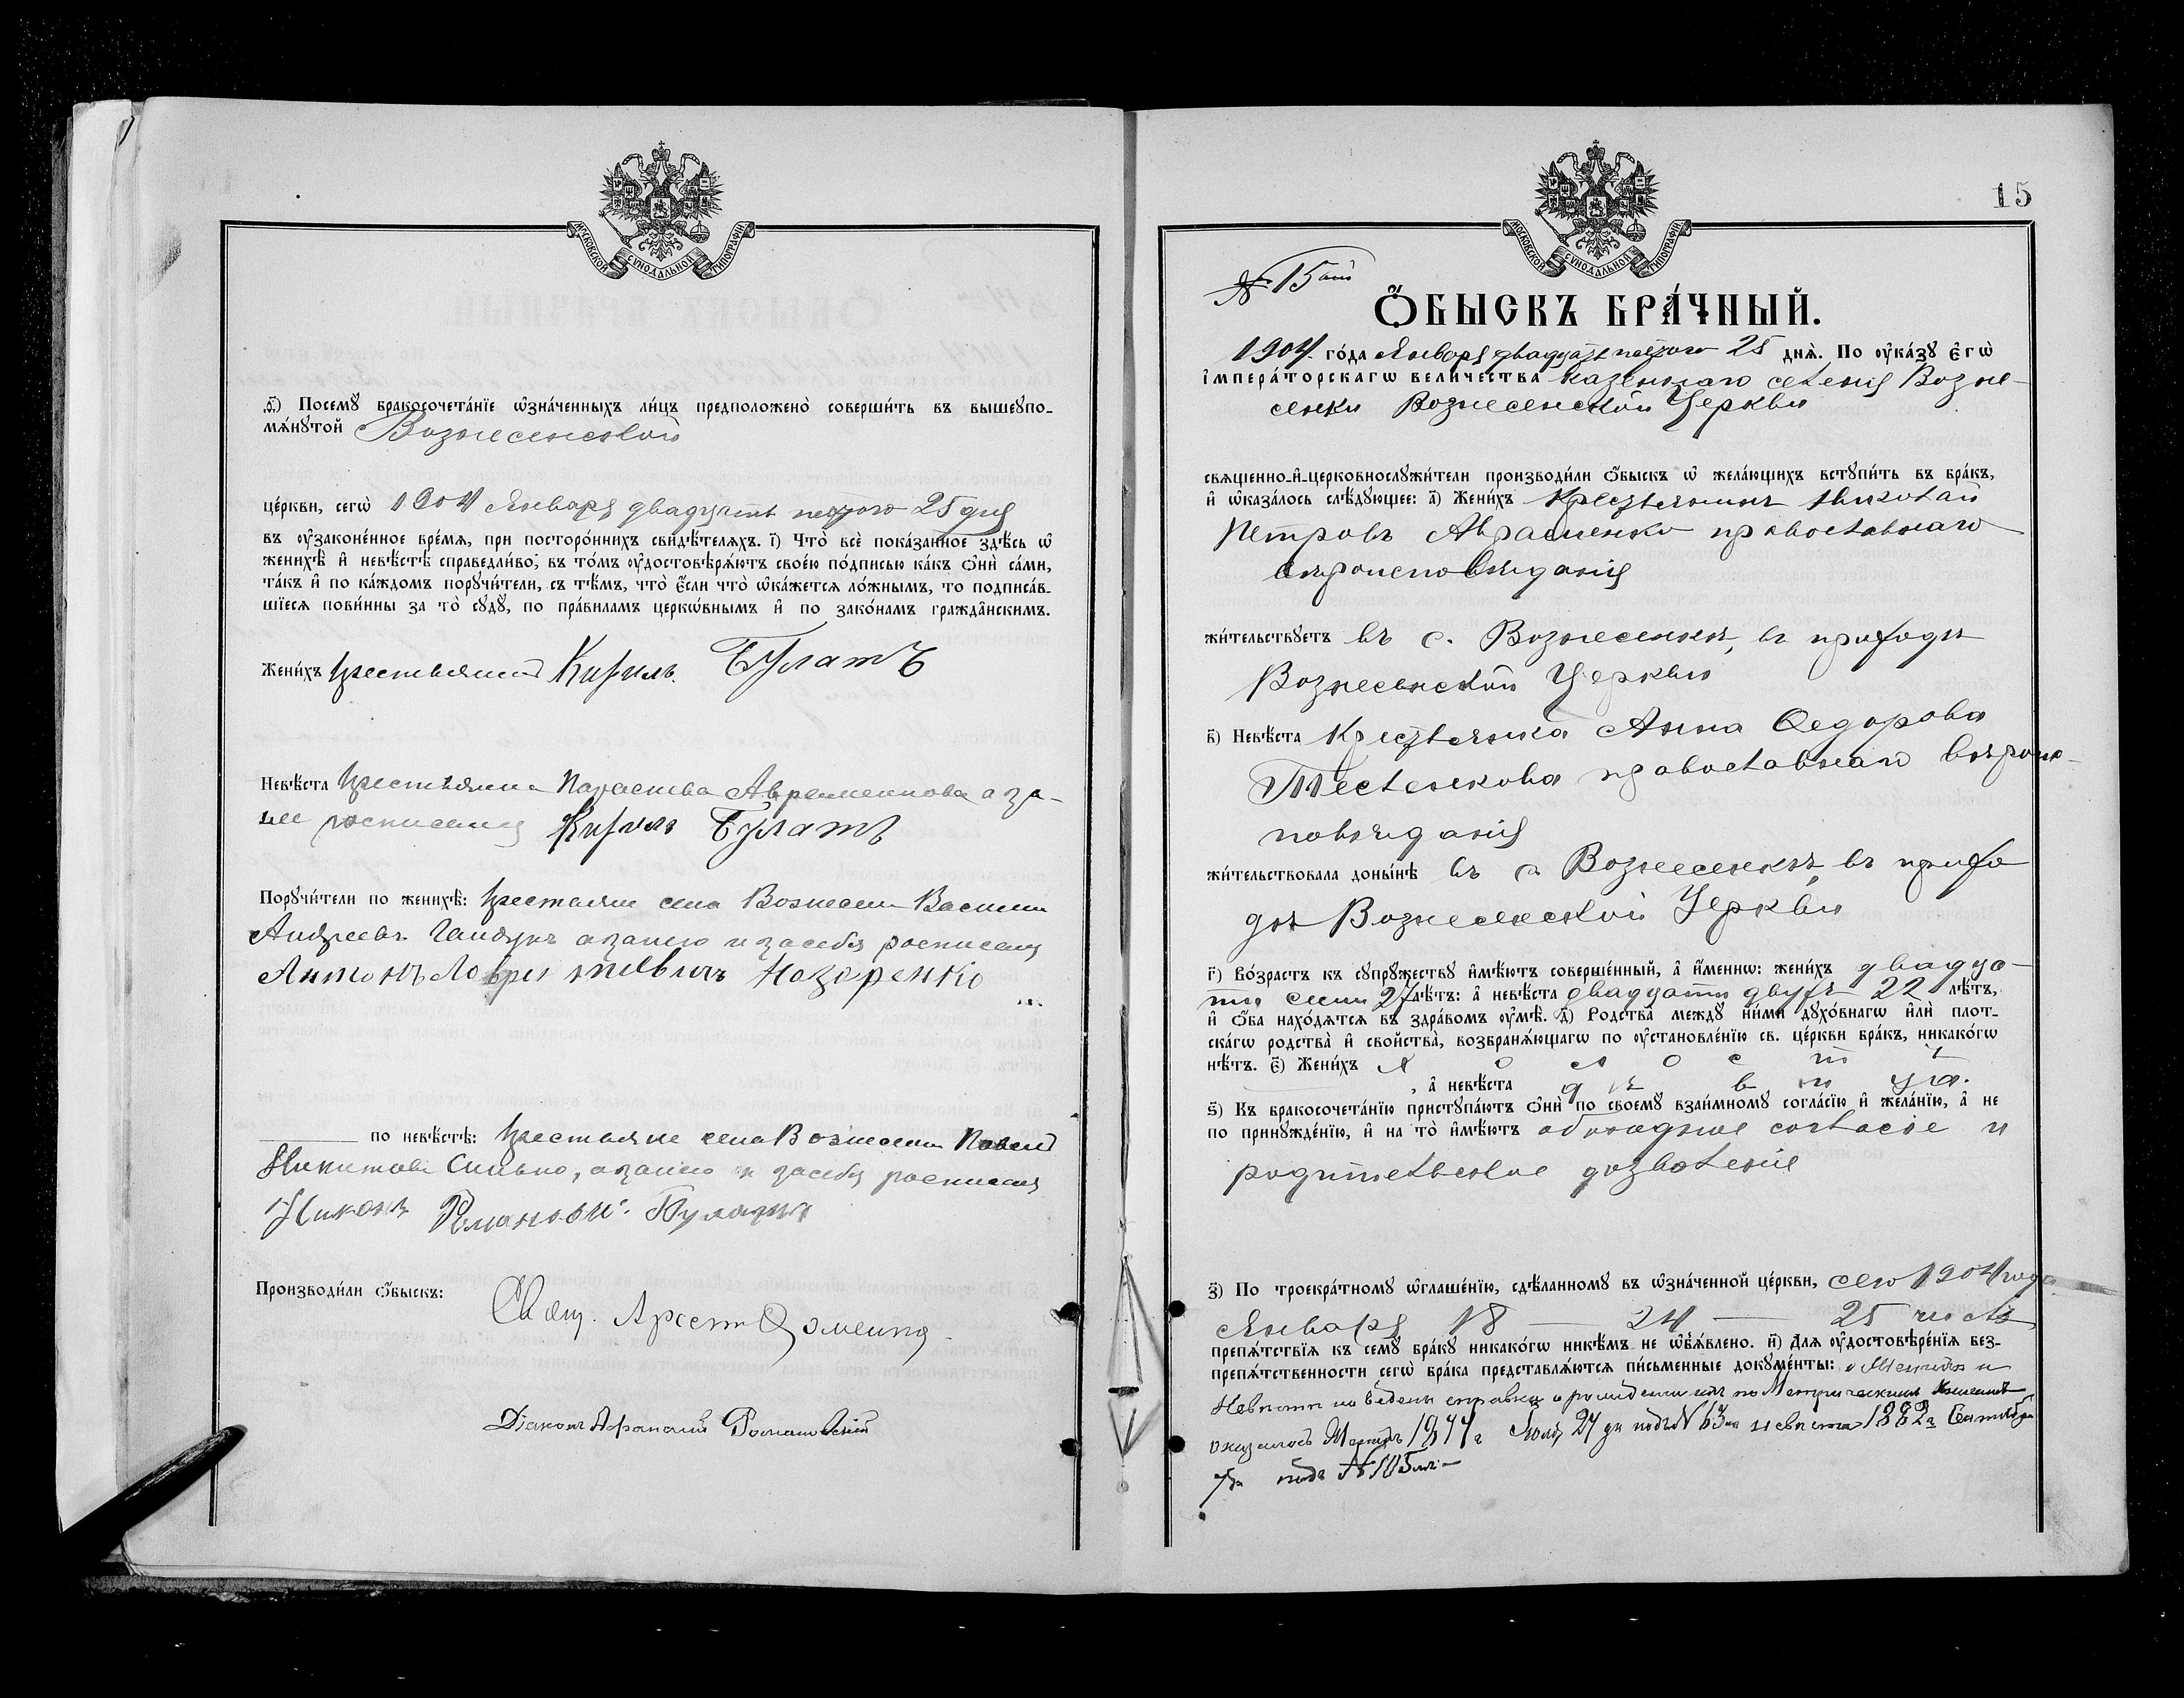 МОСКОВСКОЙ СѴНОДАЛЬНОЙ ТИПОГРАФІИ
ѳ҃) Посемꙋ̀ бракосочета́нїе ѡ҆зна́ченныхъ ли́цъ предположено̀ соверши́ть въ вышеꙋпо-
мѧ́нꙋтой Вознесенской
це́ркви, сегѡ̀ 1904 Января двадцать пятого 25 дня
въ ᲂу҆зако́ненное вре́мѧ, при посторо́ннихъ свидѣ́телѧхъ. і҃) Что̀ всѐ пока́занное здѣ́сь ѡ҆
женихѣ̀ и҆ невѣ́стѣ справедли́во, въ то́мъ ᲂу҆достовѣрѧ́ютъ свое́ю по́дписью ка́къ ѻ҆нѝ са́ми,
та́къ и҆ по ка́ждомъ порꙋчи́тели, съ тѣ́мъ, что̀ є҆́сли что̀ ѡ҆ка́жется ло́жнымъ, то подписа́в-
шїесѧ пови́нны за то̀ сꙋдꙋ̀, по пра́виламъ церкѡ́внымъ и҆ по зако́намъ гражда̂нскимъ.
Жени́хъ крестьянинъ Кирилъ Булатъ
Невѣ́ста крестьянка Параскева Авраменкова а за
нее росписался Кирилъ Булатъ
Порꙋчи́тели по женихѣ̀: крестьяне села Вознесенки Василий
Андреевъ а занего и засебя росписался
Антонъ Назаренко
по невѣ́стѣ: крестьяне села Вознесенки Павелъ
Никитовъ а занего и засебя росписался
Никонъ
Производи́ли ѻ҆́быскъ:
Свящ.
Діаконъ Романовскій
15
МОСКОВСКОЙ СѴНОДАЛЬНОЙ ТИПОГРАФІИ
№ 15
Ѻ҆́БЫСКЪ БРА́ЧНЫЙ.
1904 го́да Января двадцать пятого 25 днѧ̀. По ᲂу҆ка́зꙋ є҆гѡ̀
і҆мпера́торскагѡ вели́чества казенного селения Возне-
сенки Вознесенской Церкви
свѧщенно-и҆-церковнослꙋжи́тели производи́ли ѻ҆́быскъ ѡ҆ жела́ющихъ встꙋпи́ть въ бра́къ,
и҆ ѡ҆каза́лось слѣ́дꙋющее: а҃) Жени́хъ Крестьянинъ Николай
Петровъ Авраменко православнаго
вѣроисповѣданія
жи́тельствꙋетъ въ с. Вознесенкѣ, въ приходѣ
Вознесенской Церкви
в҃) Невѣ́ста Крестьянка Анна Федорова
православнаго вѣроис-
повѣданія
жи́тельствовала доны́нѣ въ с. Вознесенкѣ, въ прихо
дѣ Вознесенской Церкви
г҃) Во́зрастъ къ сꙋпрꙋ́жествꙋ и҆мѣ́ютъ соверше́нный, а҆ и҆́меннѡ: жени́хъ двадца-
ть семи 27 лѣ́тъ: а҆ невѣ́ста двадцати двухъ 22 лѣ́тъ,
и҆ ѻ҆́ба нахо́дѧтсѧ въ здра́вомъ ᲂу҆мѣ̀. д҃) Родства̀ междꙋ̀ ни́ми дꙋхо́внагѡ и҆лѝ плот-
ска́гѡ родства̀ и҆ свойства̀, возбранѧ́ющагѡ по ᲂу҆становле́нїю св. це́ркви бра́къ, никако́гѡ
нѣ́тъ. є҃) Жени́хъ Х о л о с т ъ
, а҆ невѣ́ста д ѣ в и ца.
ѕ҃) Къ бракосочета́нїю пристꙋпа́ютъ ѻ҆нѝ по своемꙋ̀ взаи́мномꙋ согла́сїю и҆ жела́нїю, а҆ не
по принꙋжде́нїю, и҆ на то̀ и҆мѣ́ютъ обоюдное согласіе и
родительское дозволеніе
з҃) По троекра́тномꙋ ѡ҆глаше́нїю, сдѣ́ланномꙋ въ ѡ҆зна́ченной це́ркви, сего 1904 года
Января 18 — 24 — 25 числъ
препѧ́тствїѧ къ семꙋ̀ бра́кꙋ никако́гѡ никѣ́мъ не ѡ҆б̾ѧ́влено. и҃) Для ᲂу҆достовѣре́нїѧ без-
препѧ́тственности сегѡ̀ бра́ка представлѧ́ютсѧ пи́сьменные докꙋме́нты: о Женихѣ и
Невѣстѣ справки о рожденіи ихъ по Метрическимъ Книгамъ
оказалось 24 дн подъ № 63 невѣста 1882 г Сентября
подъ № 105